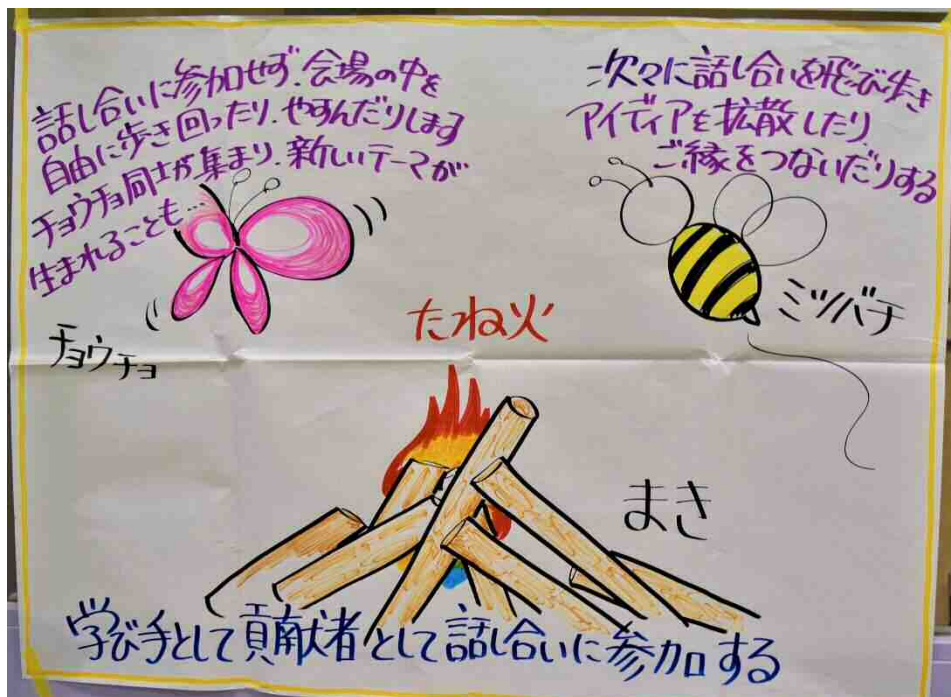 話し合いに参加せず、会場の中を
自由に歩き回ったり、やすんだりします
チョウチョ同士が集まり、新しいテーマが
生まれることも…
チョウチョ
次々に話し合いを飛び歩き
アイディアを拡散したり、
ご縁をつないだりする
ミツバチ
たね火
まき
学び手として貢献者として話し合いに参加する